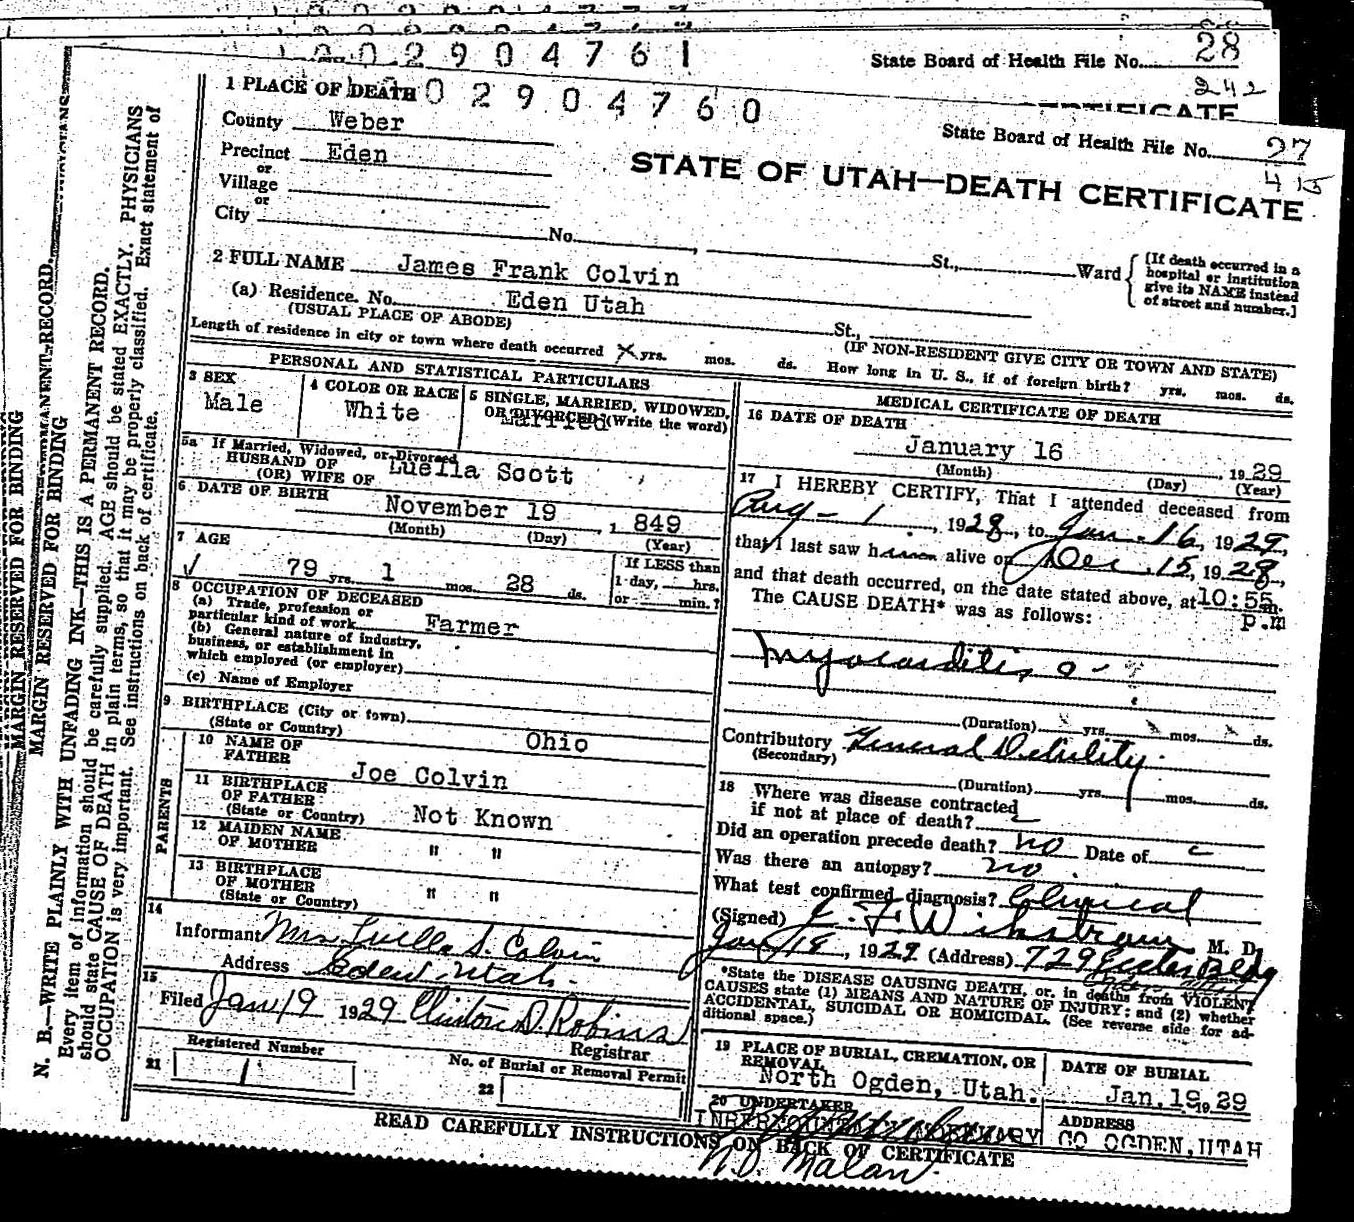 0 0 2 9 0 4 7 6 1
State Board of Health File No. 28
242
1 PLACE OF DEATH 0 2 9 0 4 7 6 0
CERTIFICATE
County Weber
State Board of Health File No. 27
4 15
Precinct Eden
or
Village
or
City
STATE OF UTAH—DEATH CERTIFICATE
No. , St., Ward
{If death occurred in a
hospital or institution
give its NAME instead
of street and number.]
2 FULL NAME James Frank Colvin
(a) Residence. No. Eden Utah St.,
(USUAL PLACE OF ABODE)
(IF NON-RESIDENT GIVE CITY OR TOWN AND STATE)
Length of residence in city or town where death occurred x yrs. mos. ds. How long in U. S., if of foreign birth? yrs. mos. ds.
PERSONAL AND STATISTICAL PARTICULARS
3 SEX
Male
4 COLOR OR RACE
White
5 SINGLE, MARRIED, WIDOWED,
OR DIVORCED (Write the word)
Married
5a If Married, Widowed, or Divorced
HUSBAND OF
(OR) WIFE OF Luella Scott
6 DATE OF BIRTH
November 19 , 1 849
(Month) (Day) (Year)
7 AGE
79 yrs. 1 mos. 28 ds.
If LESS than
1 day, hrs.
or min.?
8 OCCUPATION OF DECEASED
(a) Trade, profession or
particular kind of work Farmer
(b) General nature of industry,
business, or establishment in
which employed (or employer)
(c) Name of Employer
9 BIRTHPLACE (City or town)
(State or Country) Ohio
PARENTS
10 NAME OF
FATHER Joe Colvin
11 BIRTHPLACE
OF FATHER
(State or Country) Not Known
12 MAIDEN NAME
OF MOTHER " "
13 BIRTHPLACE
OF MOTHER
(State or Country) " "
14
Informant Mrs Luella S. Colvin
Address Eden Utah.
15
Filed Jan 19 1929 Clinton D. Robins
Registrar
Registered Number
21
No. of Burial or Removal Permit
22
MEDICAL CERTIFICATE OF DEATH
16 DATE OF DEATH
January 16 , 1929
(Month) (Day) (Year)
17 I HEREBY CERTIFY, That I attended deceased from
Aug - 1 , 1928, to Jan. 16, 1929,
that I last saw h alive on Dec. 15, 1928,
and that death occurred, on the date stated above, at 10:55 m.
p.m
The CAUSE DEATH* was as follows:
Myocarditis
(Duration) yrs. mos. ds.
Contributory General Debility
(Secondary)
(Duration) yrs. mos. ds.
18 Where was disease contracted
if not at place of death?
Did an operation precede death? no Date of
Was there an autopsy? no
What test confirmed diagnosis? Clinical
(Signed) M. D.
Jan 18, 1929 (Address) 729 Eccles Bldg
*State the DISEASE CAUSING DEATH, or, in deaths from VIOLENT
CAUSES state (1) MEANS AND NATURE OF INJURY; and (2) whether
ACCIDENTAL, SUICIDAL OR HOMICIDAL. (See reverse side for ad-
ditional space.)
19 PLACE OF BURIAL, CREMATION, OR
REMOVAL
North Ogden, Utah.
DATE OF BURIAL
Jan. 19, 1929
20 UNDERTAKER
ADDRESS
CO OGDEN, UTAH
N.D. Malan
READ CAREFULLY INSTRUCTIONS ON BACK OF CERTIFICATE
MARGIN RESERVED FOR BINDING
MARGIN RESERVED FOR BINDING
N. B.—WRITE PLAINLY WITH UNFADING INK—THIS IS A PERMANENT RECORD.
Every item of information should be carefully supplied. AGE should be stated EXACTLY. PHYSICIANS
should state CAUSE OF DEATH in plain terms, so that it may be properly classified. Exact statement of
OCCUPATION is very important. See instructions on back of certificate.